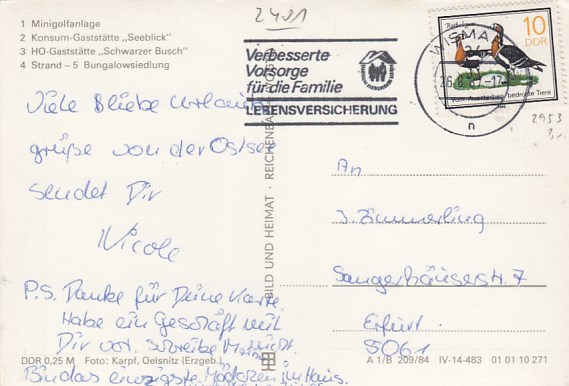 1 Minigolfanlage
2 Konsum-Gaststätte „Seeblick"
3 HO-Gaststätte „Schwarzer Busch"
4 Strand – 5 Bungalowsiedlung
2401
Verbesserte
Vorsorge
für die Familie
LEBENSVERSICHERUNG
WISMAR
n
Rothalsgans
10
DDR
Vom Aussterben bedrohte Tiere
2953
Viele liebe Urlaubs
grüße von der Ostsee
sendet Dir
Nicole
P.S. Danke für Deine Karte
Habe ein Geschäft mit
Dir vor. Schreibe
Bin das einzigste Mädchen im Haus.
BILD UND HEIMAT · REICHENBACH
An
J. Zimmerling
Sangerhäuserstr. 7
Erfurt
5061
DDR 0,25 M Foto: Karpf, Oelsnitz (Erzgeb.)
A 1/B 209/84 IV-14-483 01 01 10 271